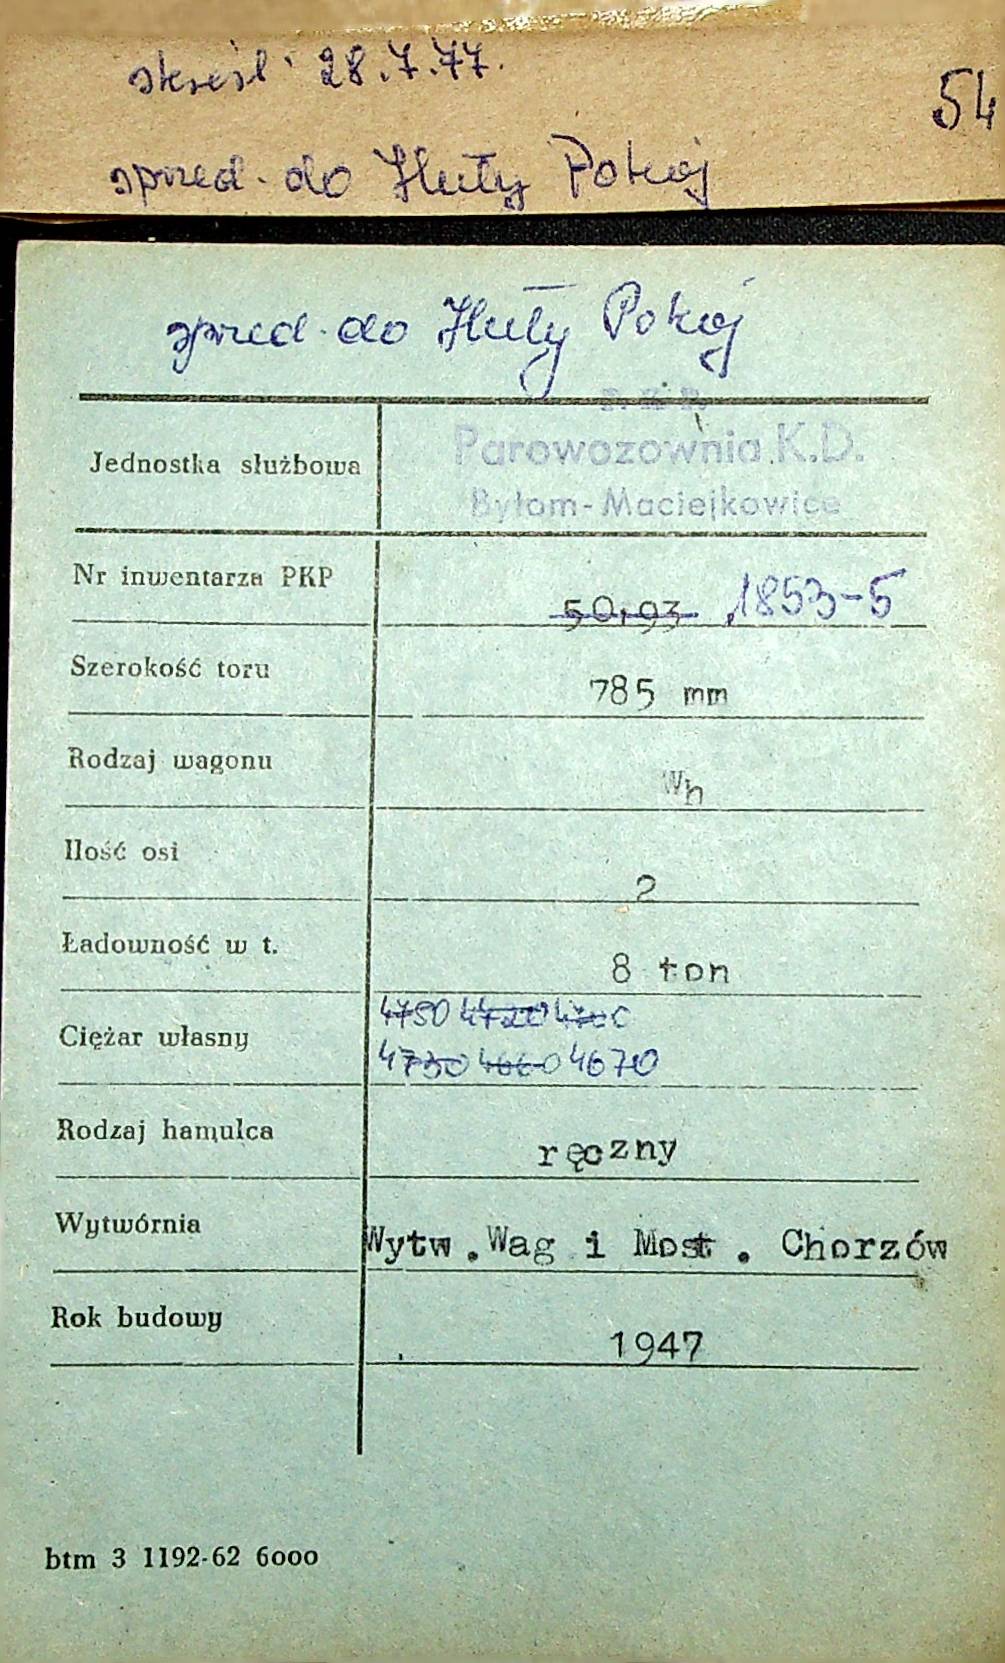 skreśl. 28.7.77.
54
sprzed. do Huty Pokój
sprzed. do Huty Pokój
P. K. P.
Parowozownia K.D.
Bytom-Maciejkowice
Jednostka służbowa
Nr inwentarza PKP 50193 1853-5
Szerokość toru 785 mm
Rodzaj wagonu Wh
Ilość osi 2
Ładowność w t. 8 ton
4750 4720
Ciężar własny
4730 4660 4670
Rodzaj hamulca ręczny
Wytwórnia Wytw. Wag i Most. Chorzów
Rok budowy 1947
btm 3 1192-62 6000